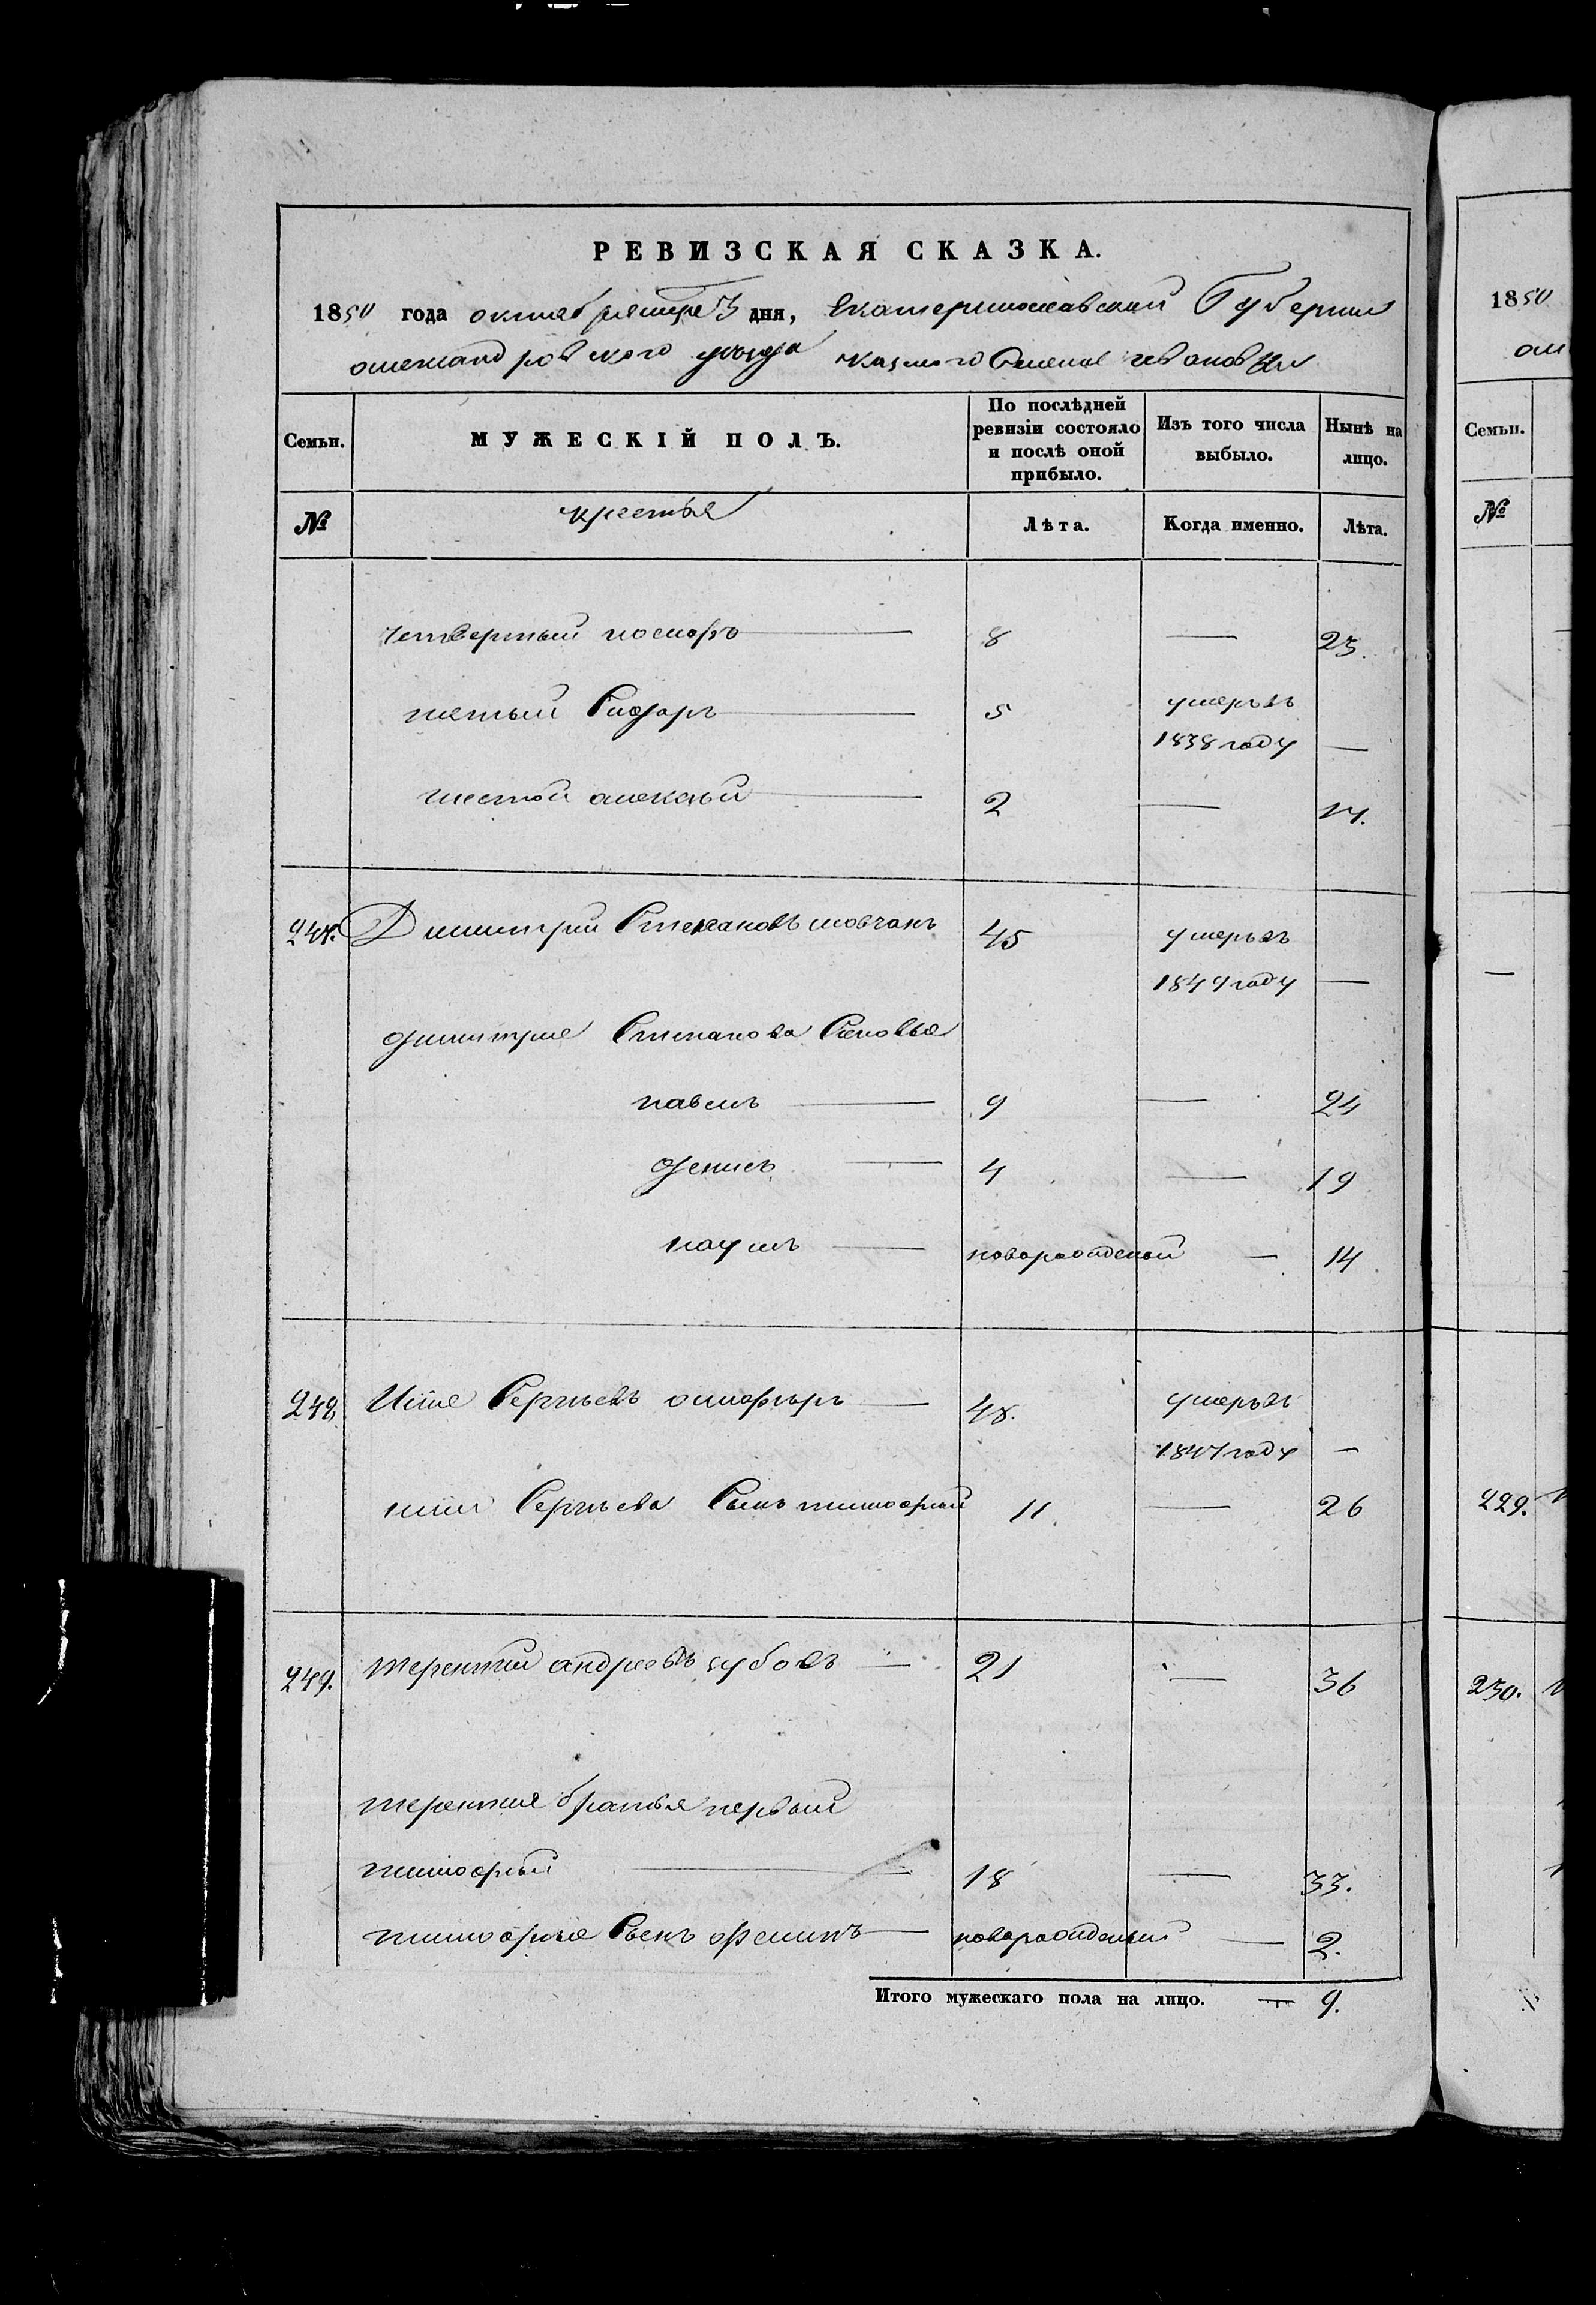 РЕВИЗСКАЯ СКАЗКА.
1850 года октября 3 дня, Екатеринославской Губернии
александровского уезда казеного Селения
Семьи.
МУЖЕСКІЙ ПОЛЪ.
По послѣдней ревизіи состояло и послѣ оной прибыло.
Изъ того числа выбыло.
Нынѣ на лицо.
№
крестья
Лѣта.
Когда именно.
Лѣта.
четвертый 8 — 23.
пятый Сидоръ 5 умеръ въ
1838 году —
шестой алексѣй 2 —
Димитрий Степановъ 45 умеръ въ
1849 году —
димитрие Степанова Сыновья
павелъ — 9 — 24
денисъ — 4 — 19
наумъ — новорожденой — 14
248. Сергѣевъ — умеръ въ
1847 году —
Сергѣева Сынъ тимофѣй 11. — 26
249. терентий андреевъ зубовъ — 21 — 36
терентия братья первый
тимофѣй — 18 — 33.
тимофѣя Сынъ — новорожденый — 2.
Итого мужескаго пола на лицо. — 9.
1850
Семьи.
№
—
229.
230.